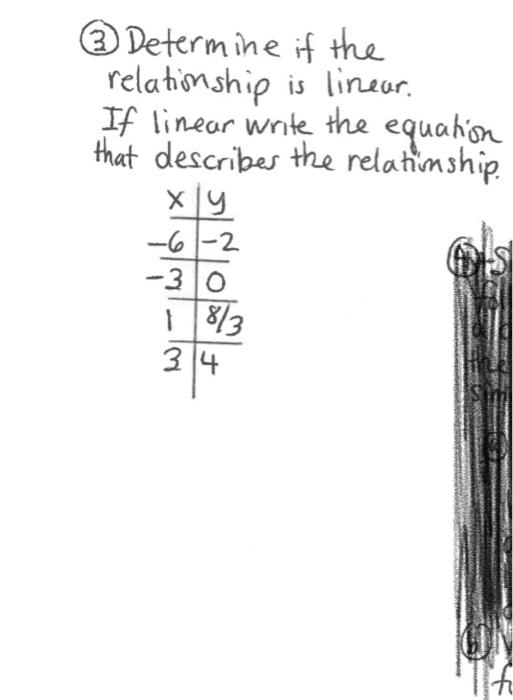 ③ Determine if the
relationship is linear.
If linear write the equation
that describes the relationship.
x | y
-6 | -2
-3 | 0
1 | 8/3
3 | 4